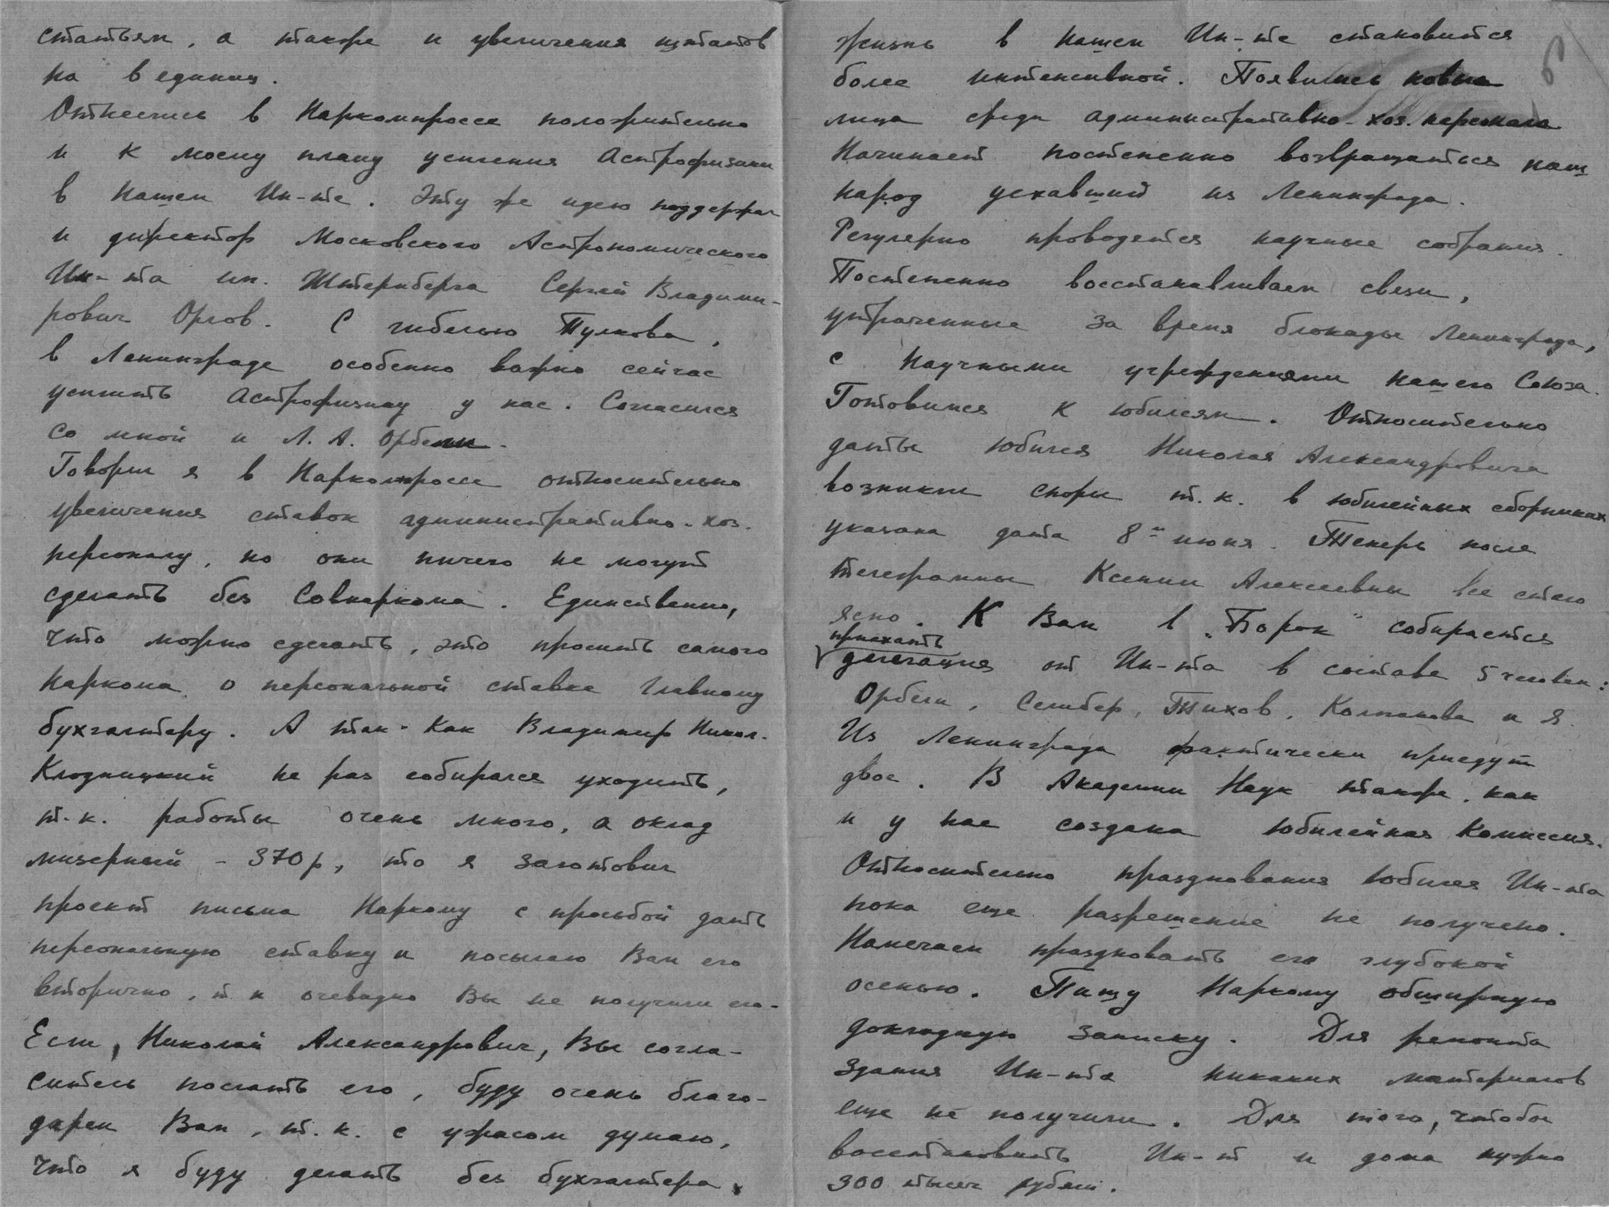 статьям, а также и увеличения штатов
на 8 единиц.
Отнеслись в Наркомпросе положительно
и к моему плану усиления Астрофизики
в нашем Ин-те. Эту же идею поддержал
и директор Московского Астрономического
Ин-та им. Штернберга Сергей Владими-
рович Орлов. С гибелью Пулкова,
в Ленинграде особенно важно сейчас
усилить Астрофизику у нас. Согласился
со мной и Л. А. Орбели.
Говорил я в Наркомпросе относительно
увеличения ставок административно-хоз.
персоналу, но они ничего не могут
сделать без Совнаркома. Единственно,
что можно сделать, это просить самого
Наркома о персональной ставке Главному
бухгалтеру. А так-как Владимир Никол.
Клодницкий не раз собирался уходить,
т.к. работы очень много, а оклад
мизерный - 370р, то я заготовил
проект письма Наркому с просьбой дать
персональную ставку и посылаю Вам его
вторично, т.к очевидно Вы не получили его.
Если, Николай Александрович, Вы согла-
ситесь послать его, буду очень благо-
дарен Вам, т.к. с ужасом думаю,
что я буду делать без бухгалтера.
6
жизнь в нашем Ин-те становится
более интенсивной. Появились новые
лица среди административно-хоз. персонала
Начинает постепенно возвращаться наш
народ уехавший из Ленинграда.
Регулярно проводятся научные собрания.
Постепенно восстанавливаем связи,
утраченные за время блокады Ленинграда,
с Научными учреждениями нашего Союза.
Готовимся к юбилеям. Относительно
даты юбилея Николая Александровича
возникли споры т.к. в юбилейных сборниках
указана дата 8го июня. Теперь после
телеграммы Ксении Алексеевны все стало
ясно. К Вам в „Борок" собирается
приехать
делегация от Ин-та в составе 5 человек:
Орбели, Тихов, и я.
Из Ленинграда фактически приедут
двое. В Академии Наук также, как
и у нас создана юбилейная Комиссия.
Относительно празднования юбилея Ин-та
пока еще разрешение не получено.
Намечаем праздновать его глубокой
осенью. Пишу Наркому обширную
докладную записку. Для ремонта
здания Ин-та никаких материалов
еще не получили. Для того, чтобы
восстановить Ин-т и дома нужно
300 тысяч рублей.